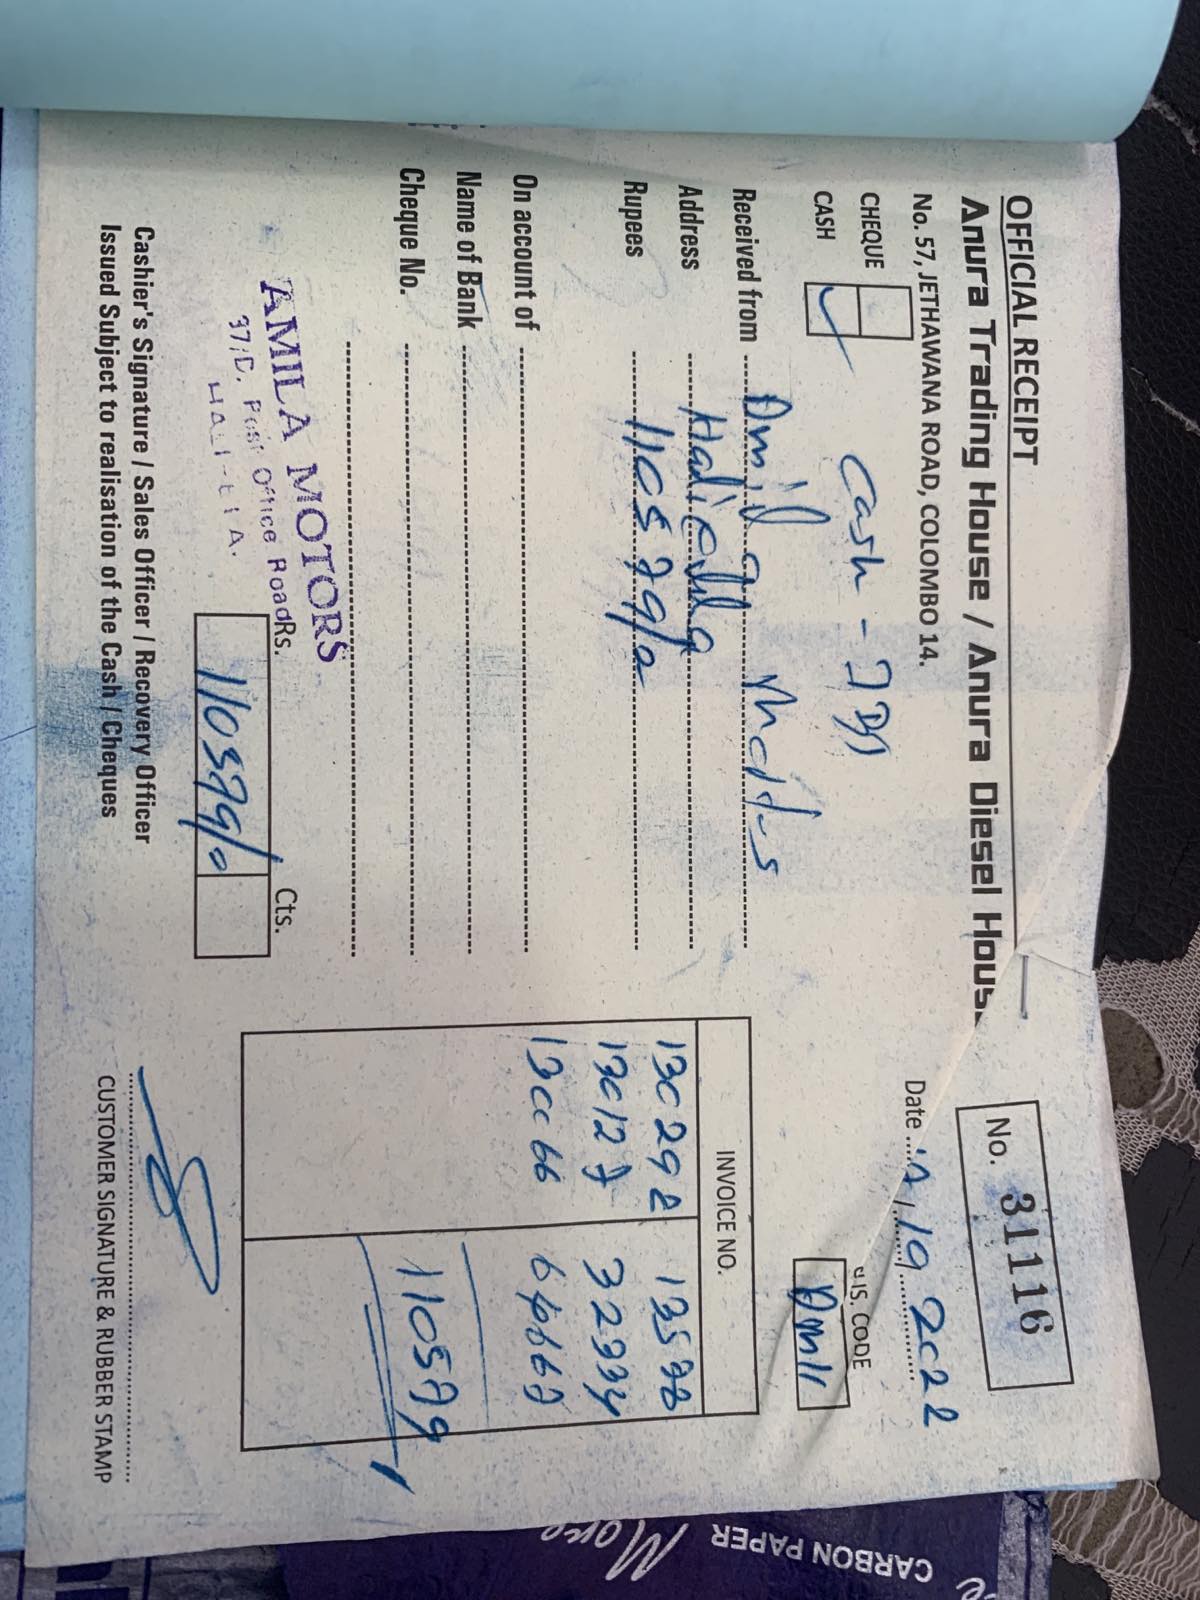 OFFICIAL RECEIPT
Anura Trading House / Anura Diesel House
No. 57, JETHAWANA ROAD, COLOMBO 14.
No. 31116
Date 10 2022
CHEQUE
CASH
Cash -
CODE
Received from Amila Motors
Address
Rupees 110579/-
On account of
Name of Bank
Cheque No.
INVOICE NO.
130292 13578
130127 32334
130066 64667
110579
AMILA MOTORS
37/C, Post Office Road
Rs. Cts.
110579/-
Cashier's Signature / Sales Officer / Recovery Officer
Issued Subject to realisation of the Cash / Cheques
CUSTOMER SIGNATURE & RUBBER STAMP
CARBON PAPER